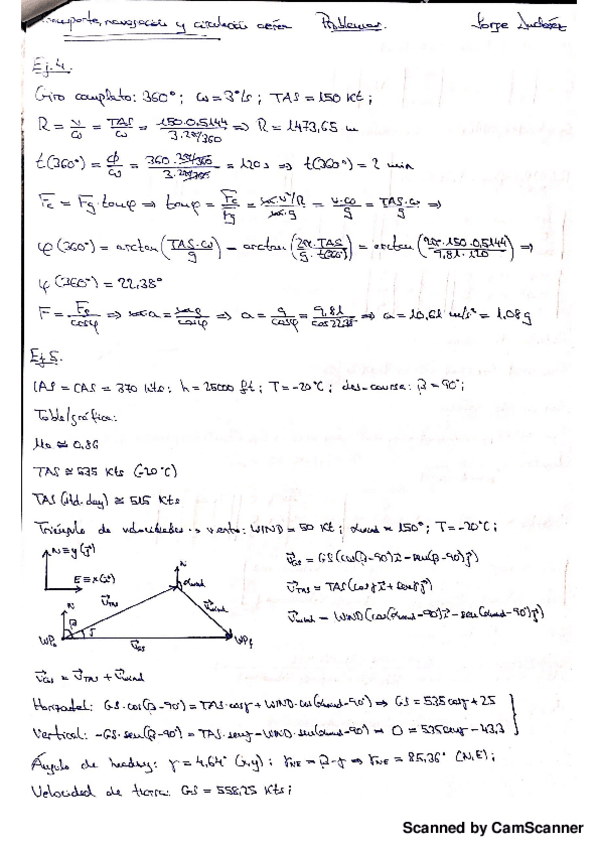 transporte, navegación y circulación aérea Problemas. Jorge
Ej.4.
Giro completo: 360°; ω=3°/s; TAS=150 Kt;
R = v/ω = TAS/ω = 150·0,5144/3·2π/360 ⇒ R=1473,65 m
t(360°) = φ/ω = 360·2π/360/3·2π/360 = 120s ⇒ t(360°) = 2 min
Fc = Fg·tanφ ⇒ tanφ = Fc/Fg = m·v²/R/m·g = v·ω/g = TAS·ω/g ⇒
φ(360°) = arctan(TAS·ω/g) = arctan(2π·TAS/g·t(360°)) = arctan(2π·150·0,5144/9,81·120) ⇒
φ(360°) = 22,38°
F = Fg/cosφ ⇒ m·a = m·g/cosφ ⇒ a = g/cosφ = 9,81/cos22,38 ⇒ a=10,61 m/s² = 1,08g
Ej 5.
IAS = CAS = 370 Kts; h = 25000 ft; T=-20°C; des-course: β=90°;
Tabla/gráfica:
Ma ≅ 0,86
TAS ≅ 535 Kts (-20°C)
TAS (std. day) ≅ 515 Kts
Triángulo de velocidades → viento: WIND = 50 Kt; αwind = 150°; T=-20°C;
N≡y(j)
E≡x(i)
N
αwind
v_TAS
v_wind
N
β
γ
WP₀
v_GS
WPf
v_GS = GS(cos(β-90)i - sen(β-90)j)
v_TAS = TAS(cosγi + senγj)
v_wind = WIND(cos(αwind-90)i - sen(αwind-90)j)
v_GS = v_TAS + v_wind
Horizontal: GS·cos(β-90°) = TAS·cosγ + WIND·cos(αwind-90°) ⇒ GS = 535cosγ + 25
Vertical: -GS·sen(β-90°) = TAS·senγ - WIND·sen(αwind-90°) ⇒ 0 = 535senγ - 43,3
Ángulo de heading: γ = 4,64° (x,y); γNE = β-γ ⇒ γNE = 85,36° (N,E);
Velocidad de tierra: GS = 558,25 Kts;
Scanned by CamScanner